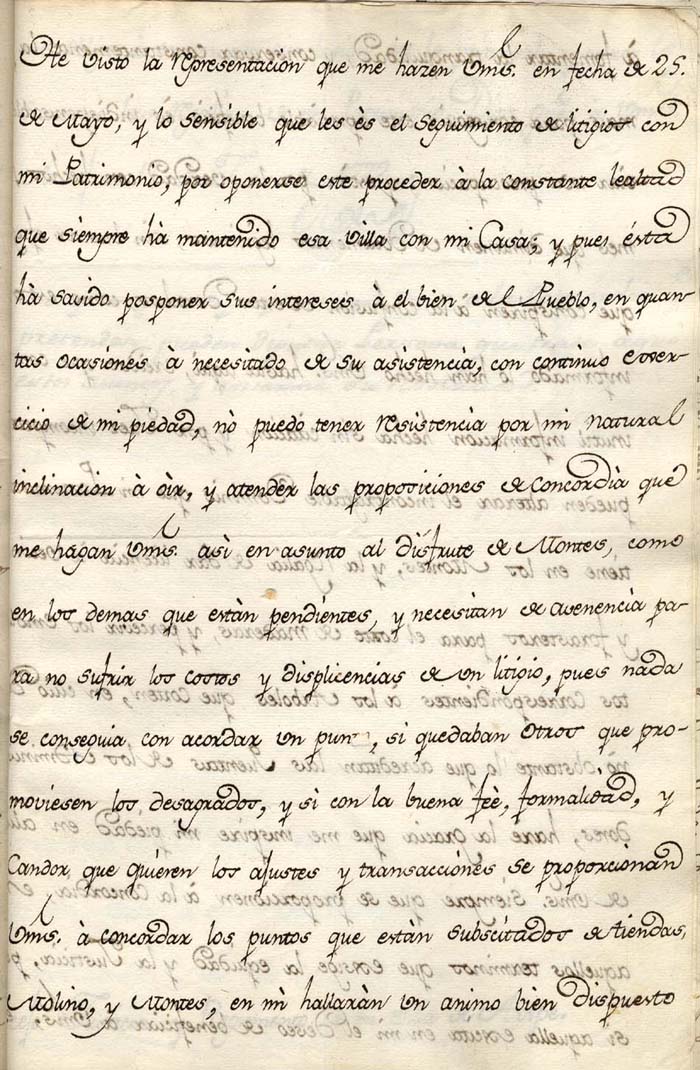 He visto la representación que me hazen Vms. en fecha de 25.
de Mayo, y lo sensible que les ès el seguimiento de litigios con
mi Patrimonio, por oponerse este proceder à la constante lealtad
que siempre hà mantenido esa Villa con mi Casa; y pues ésta
hà savido posponer sus intereses à el bien de el Pueblo, en quan-
tas ocasiones à necesitado de su asistencia, con continuo exer-
cicio de mi piedad, nò puedo tener resistencia por mi natural
inclinación à oìr, y atender las proposiciones de concordia que
me hagan Vms. asì en asunto al disfrute de Montes, como
en los demas que estàn pendientes, y necesitan de avenencia pa-
ra no sufrir los costos y displicencias de un litigio, pues nada
se conseguia con acordar un , si quedaban otros que pro-
moviesen los desagrados, y sì con la buena feè, formalidad, y
Candor, que quieren los ajustes y transacciónes se proporcionan
Vms. à concordar los puntos que estàn subscitados de tiendas,
Molino, y Montes, en mì hallaràn un animo bien dispuesto